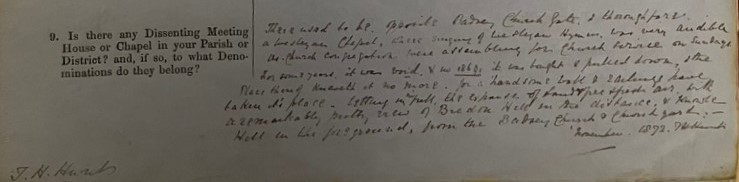 9. Is there any Dissenting Meeting
House or Chapel in your Parish or
District? and, if so, to what Deno-
minations do they belong?
There used to be, opposite Badsey Church Gate, & thoroughfare
a Wesleyan Chapel, whose singing of Wesleyan Hymns, was very audible
as Church Congregation were assembling for Church Service on Sundays
For some years, it was void, & in 186 it was bought & pulled down, & the
Place thereof knoweth it no more. for a handsome wall & railings have
taken its place. letting in full, the expanse of & fresh air, with
a remarkably pretty view of Bredon Hill in the distance, &
Hill in the foreground, from the Badsey Church & Church yard.—
November 1872. THHunt
T. H. Hunt